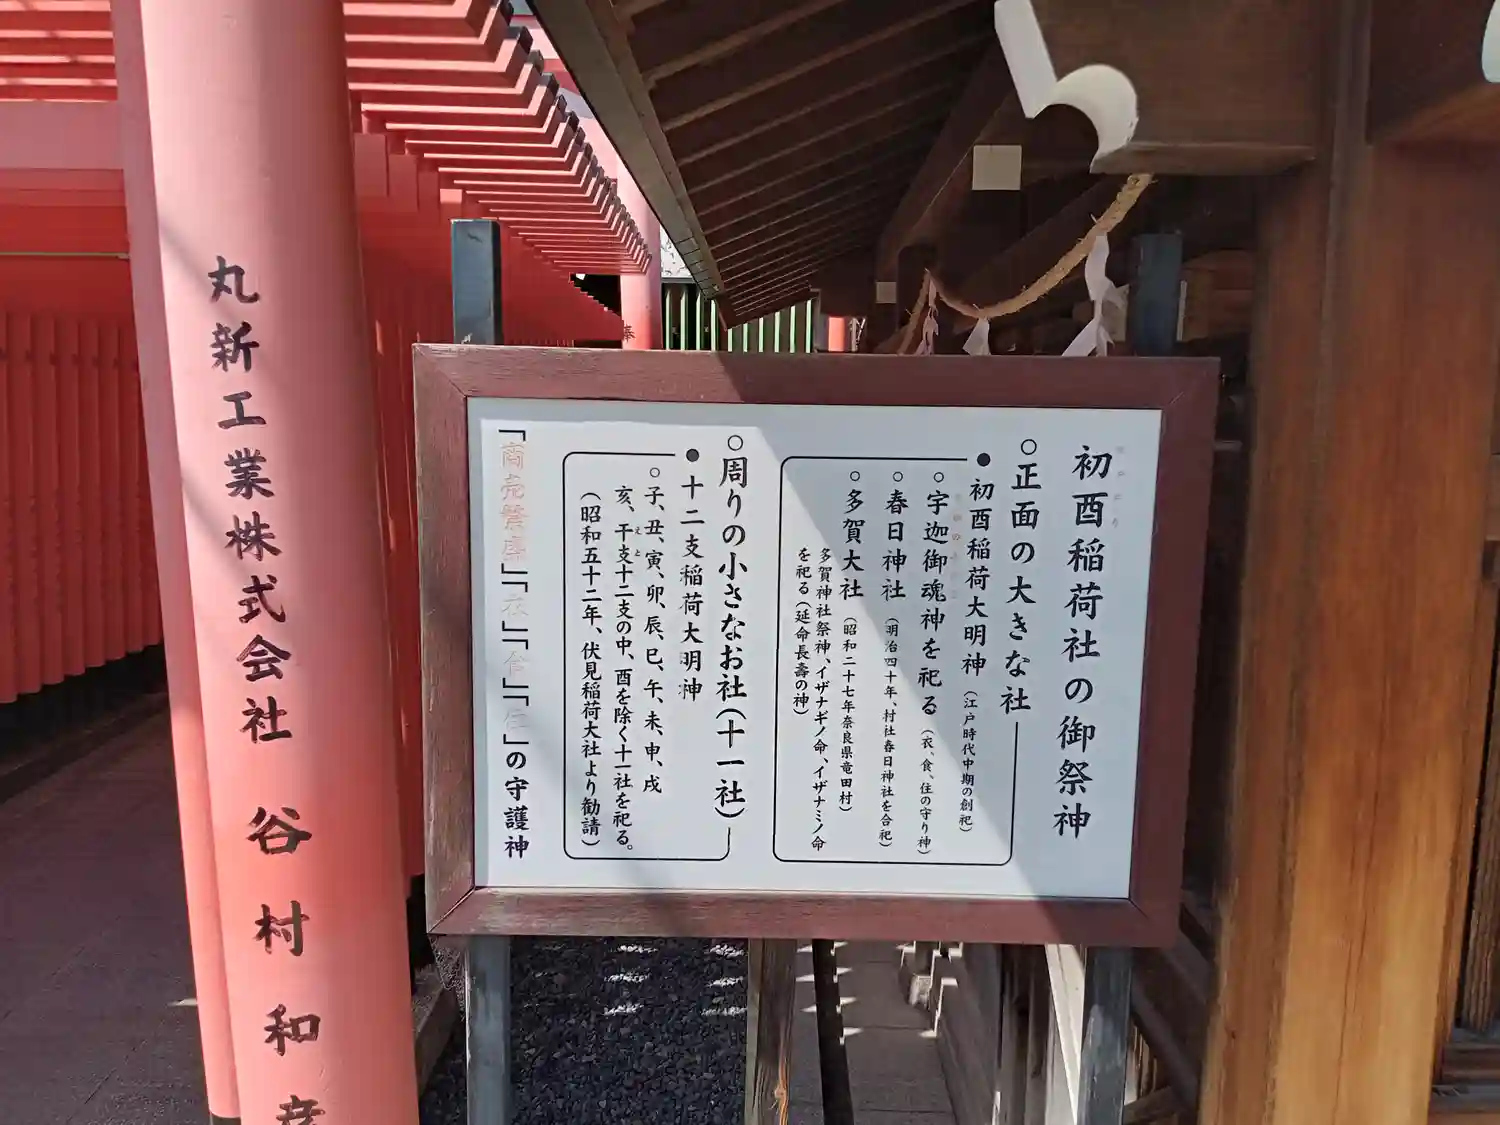 初酉稲荷社の御祭神
○正面の大きな社
●初酉稲荷大明神（江戸時代中期の創祀）
○宇迦御魂神を祀る（衣、食、住の守り神）
○春日神社（明治四十年、村社春日神社を合祀）
○多賀大社（昭和二十七年奈良県竜田村）
多賀神社祭神、イザナギノ命、イザナミノ命
を祀る（延命長壽の神）
○周りの小さなお社（十一社）
●十二支稲荷大明神
○子、丑、寅、卯、辰、巳、午、未、申、戌
亥、干支十二支の中、酉を除く十一社を祀る。
えと
（昭和五十二年、伏見稲荷大社より勧請）
「商売繁盛」「衣」「食」「住」の守護神
丸新工業株式会社 谷村和彦
奉